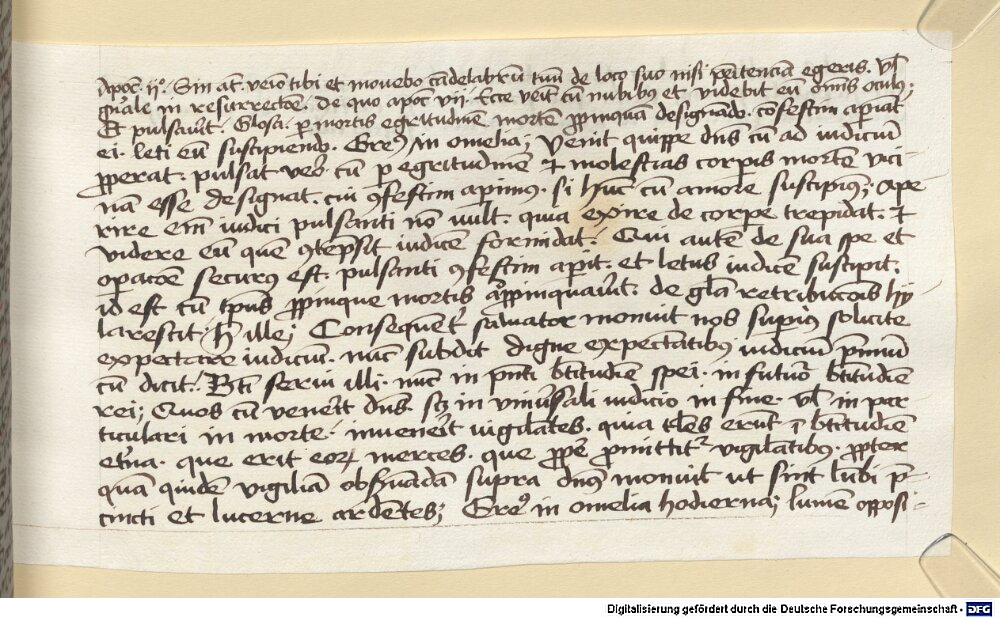 Apoc̄. ijͦ. Sin aūt. venio tibi et movebo cādelabrū tuū de loco suo nisi pēitenciā egeris. Vl̄
gn̄ale in resurrectōe. De quo apoc̄ vij. Ecce veīt cū nubibꝰ et videbit eū om̄is oculꝰ;
Et pulsav̄it. Glosa. ꝑ mortis egritudinē mortē ꝓpinquā designādo. cōfestim apiāt
ei. leti eū suscipiendo. Greꝰ in omelia; Venit quippe dn̄s cū ad iudiciū
ꝓperat. pulsat veꝰ cū ꝑ egritudinē ⁊ molestias corpis mortē vici-
nā esse designat. cui ꝯfestim aperimꝰ. si hūc cū amore suscipimꝰ; Ape
rire em̄ iudici pulsanti nō vult. quia exire de corpe trepidat. ⁊
videre eū quē ꝯtēpsit iudicē formidat. Qui autē de sua spe et
opacōe securꝰ est. pulsanti ꝯfestim apit. et letus iudicē suscipit.
id est cū tp̄us ꝓpinque mortis apꝓpinquav̄it. de gl̄a retribucōis hy
larescit. h̄ ille; Consequent̄ salvator monuit nos supiꝰ solicite
expectare iudiciū. nūc subdit digne expectantibꝰ iudiciū p̄miū
cū dicit. Bt̄i servi illi. nūc in p̄nti bt̄itudiē spei. in futuꝰ bt̄itudiē
rei; Quos cū ven̄it dn̄s. scꝫ in univ̄sali iudicio in fine. vl̄ in par
ticulari in morte. inven̄it vigilātes. quia tales erūt ī bt̄itudiē
et̄na. que erit eoꝝ merces. que ꝓpe ꝓmittitʳ vigilātibꝰ. ꝓpter
quā quidē vigiliā obs̄vādā supra dn̄us monuit ut sint lūbi p̄-
cincti et lucerne ardētes; Greꝰ in omelia hodierna; lumē opposi-
Digitalisierung gefördert durch die Deutsche Forschungsgemeinschaft - DFG